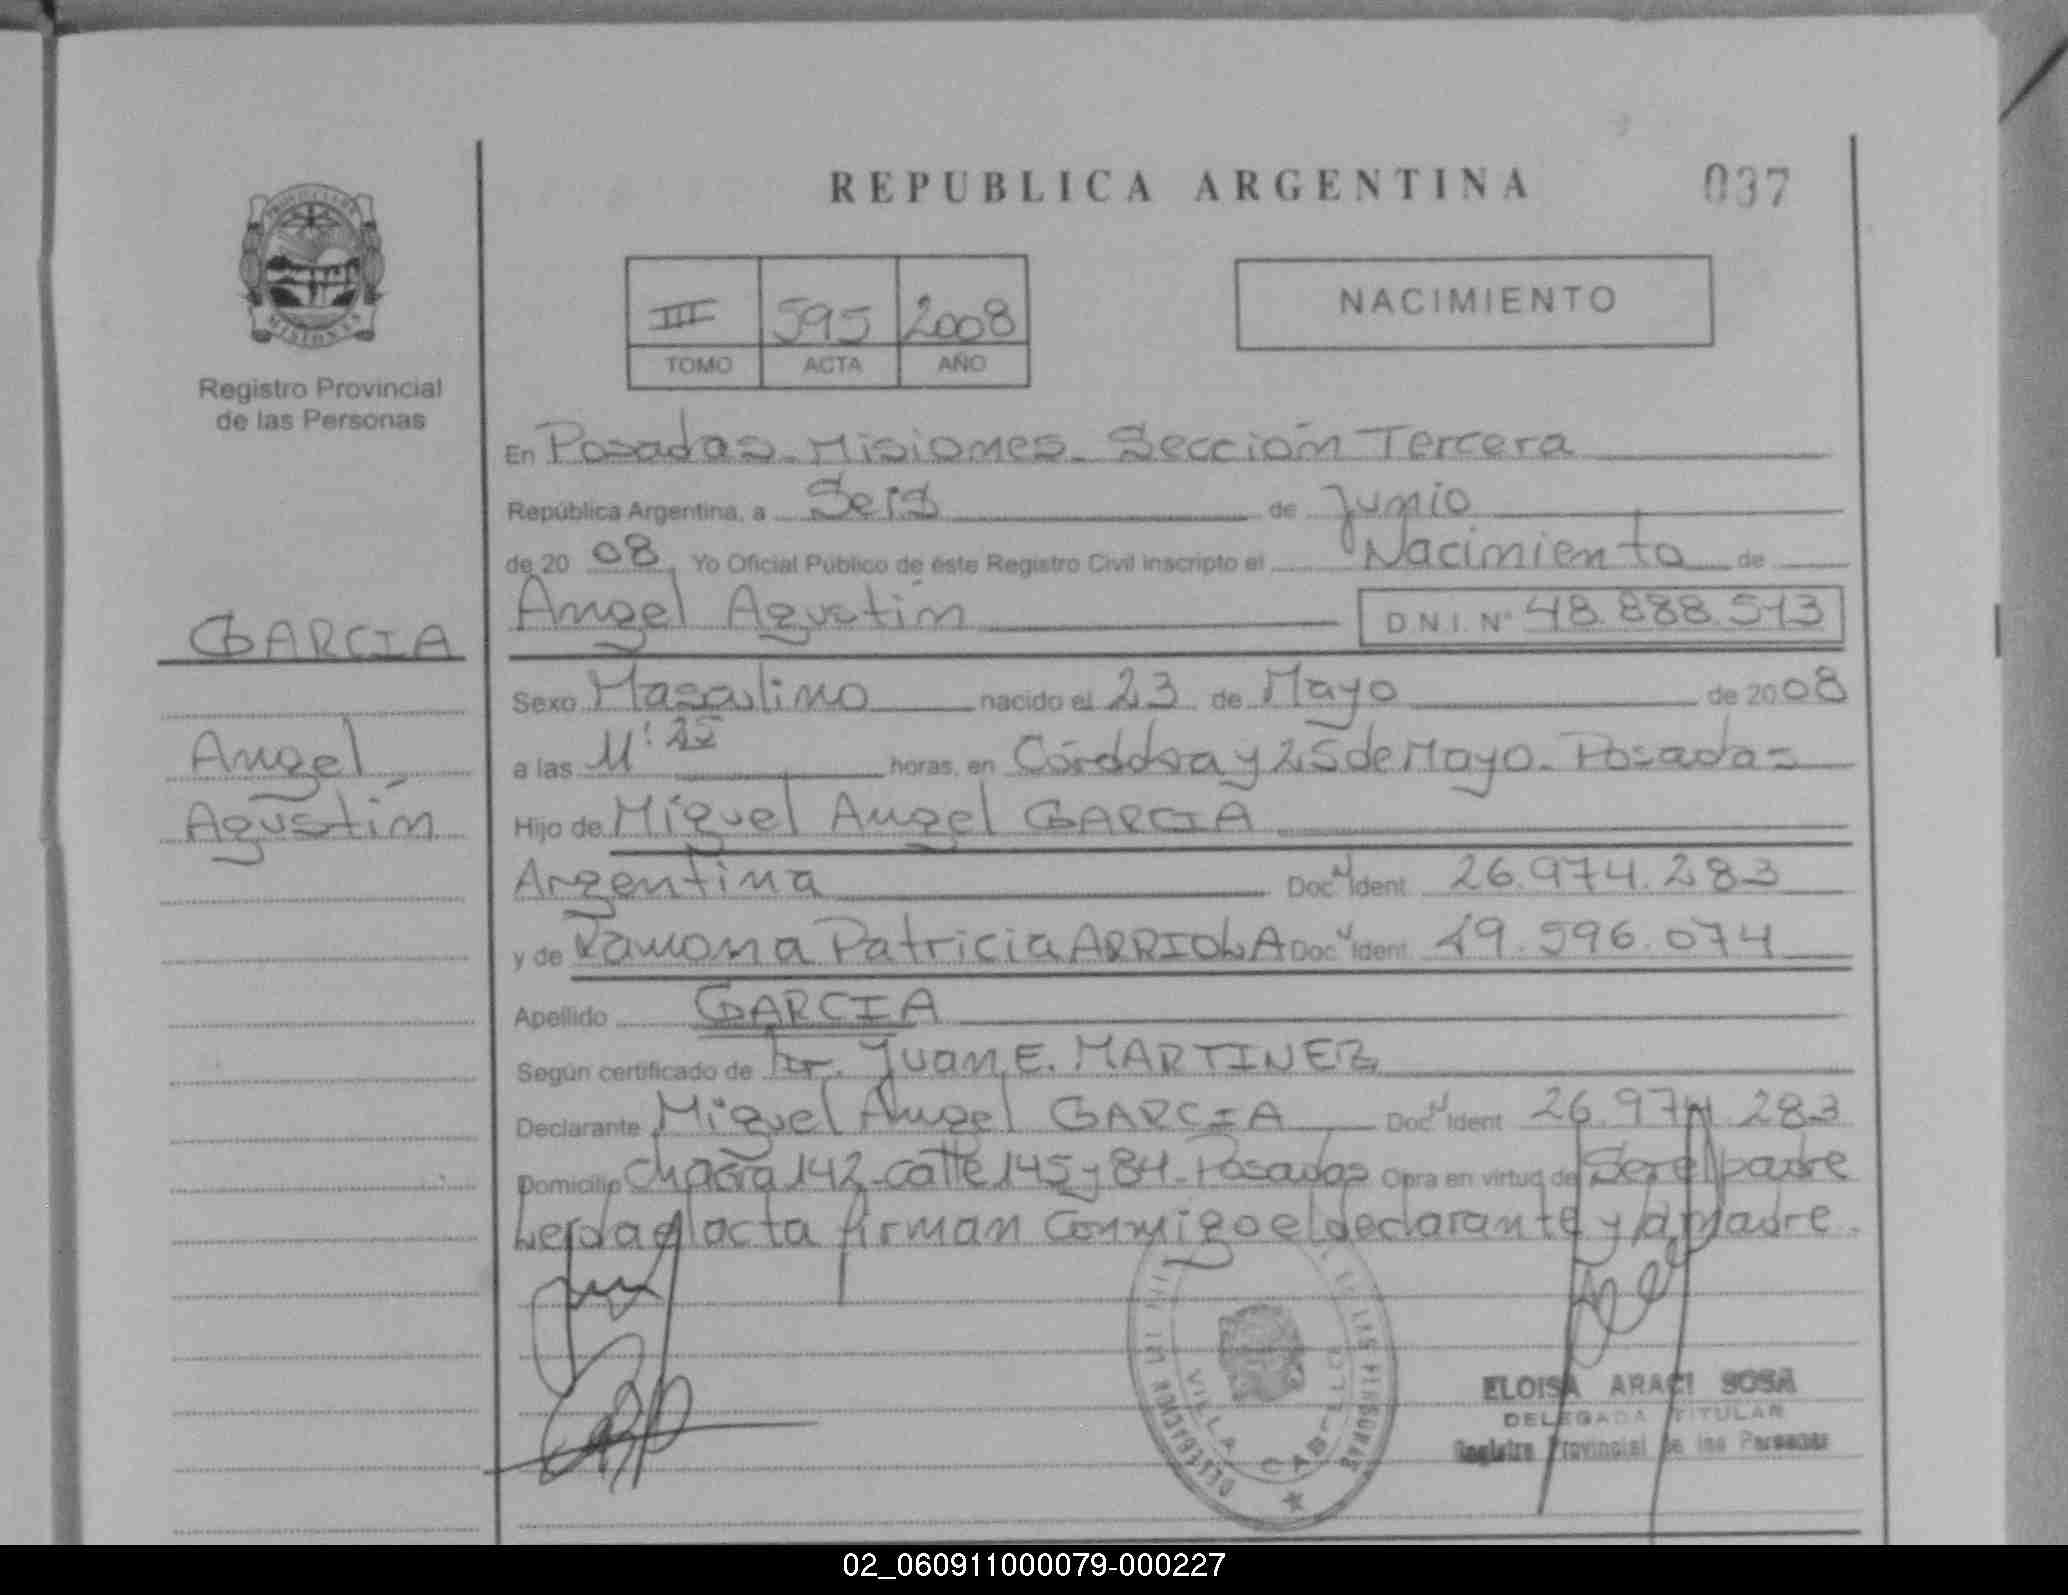 REPUBLICA ARGENTINA
037
III 595 2008
TOMO ACTA AÑO
NACIMIENTO
PROVINCIA DE
MISIONES
Registro Provincial
de las Personas
En Posadas - Misiones - Sección Tercera
República Argentina, a Seis de Junio
de 20 08, Yo Oficial Público de éste Registro Civil inscripto el Nacimiento de
Angel Agustín D N I. Nº 48.888.513
GARCIA
Angel
Agustín
Sexo Masculino nacido el 23 de Mayo de 20 08
a las 11:25 horas, en Córdoba y 25 de Mayo - Posadas
Hijo de Miguel Angel GARCIA
Argentina Doc N Ident 26.974.283
y de Ramona Patricia ARRIOLA Doc N Ident 29.596.074
Apellido GARCIA
Según certificado de Dr. Juan E. MARTINEZ
Declarante Miguel Angel GARCIA Doc N Ident 26.974.283
Domicilio Chacra 142 - calle 145 y 84 - Posadas Obra en virtud de Ser el padre
Leida el acta firman conmigo el declarante y la madre.
VILLA CABELLO
ELOISA ARACI SOSA
DELEGADA TITULAR
Registro Provincial de las Personas
02_060911000079-000227